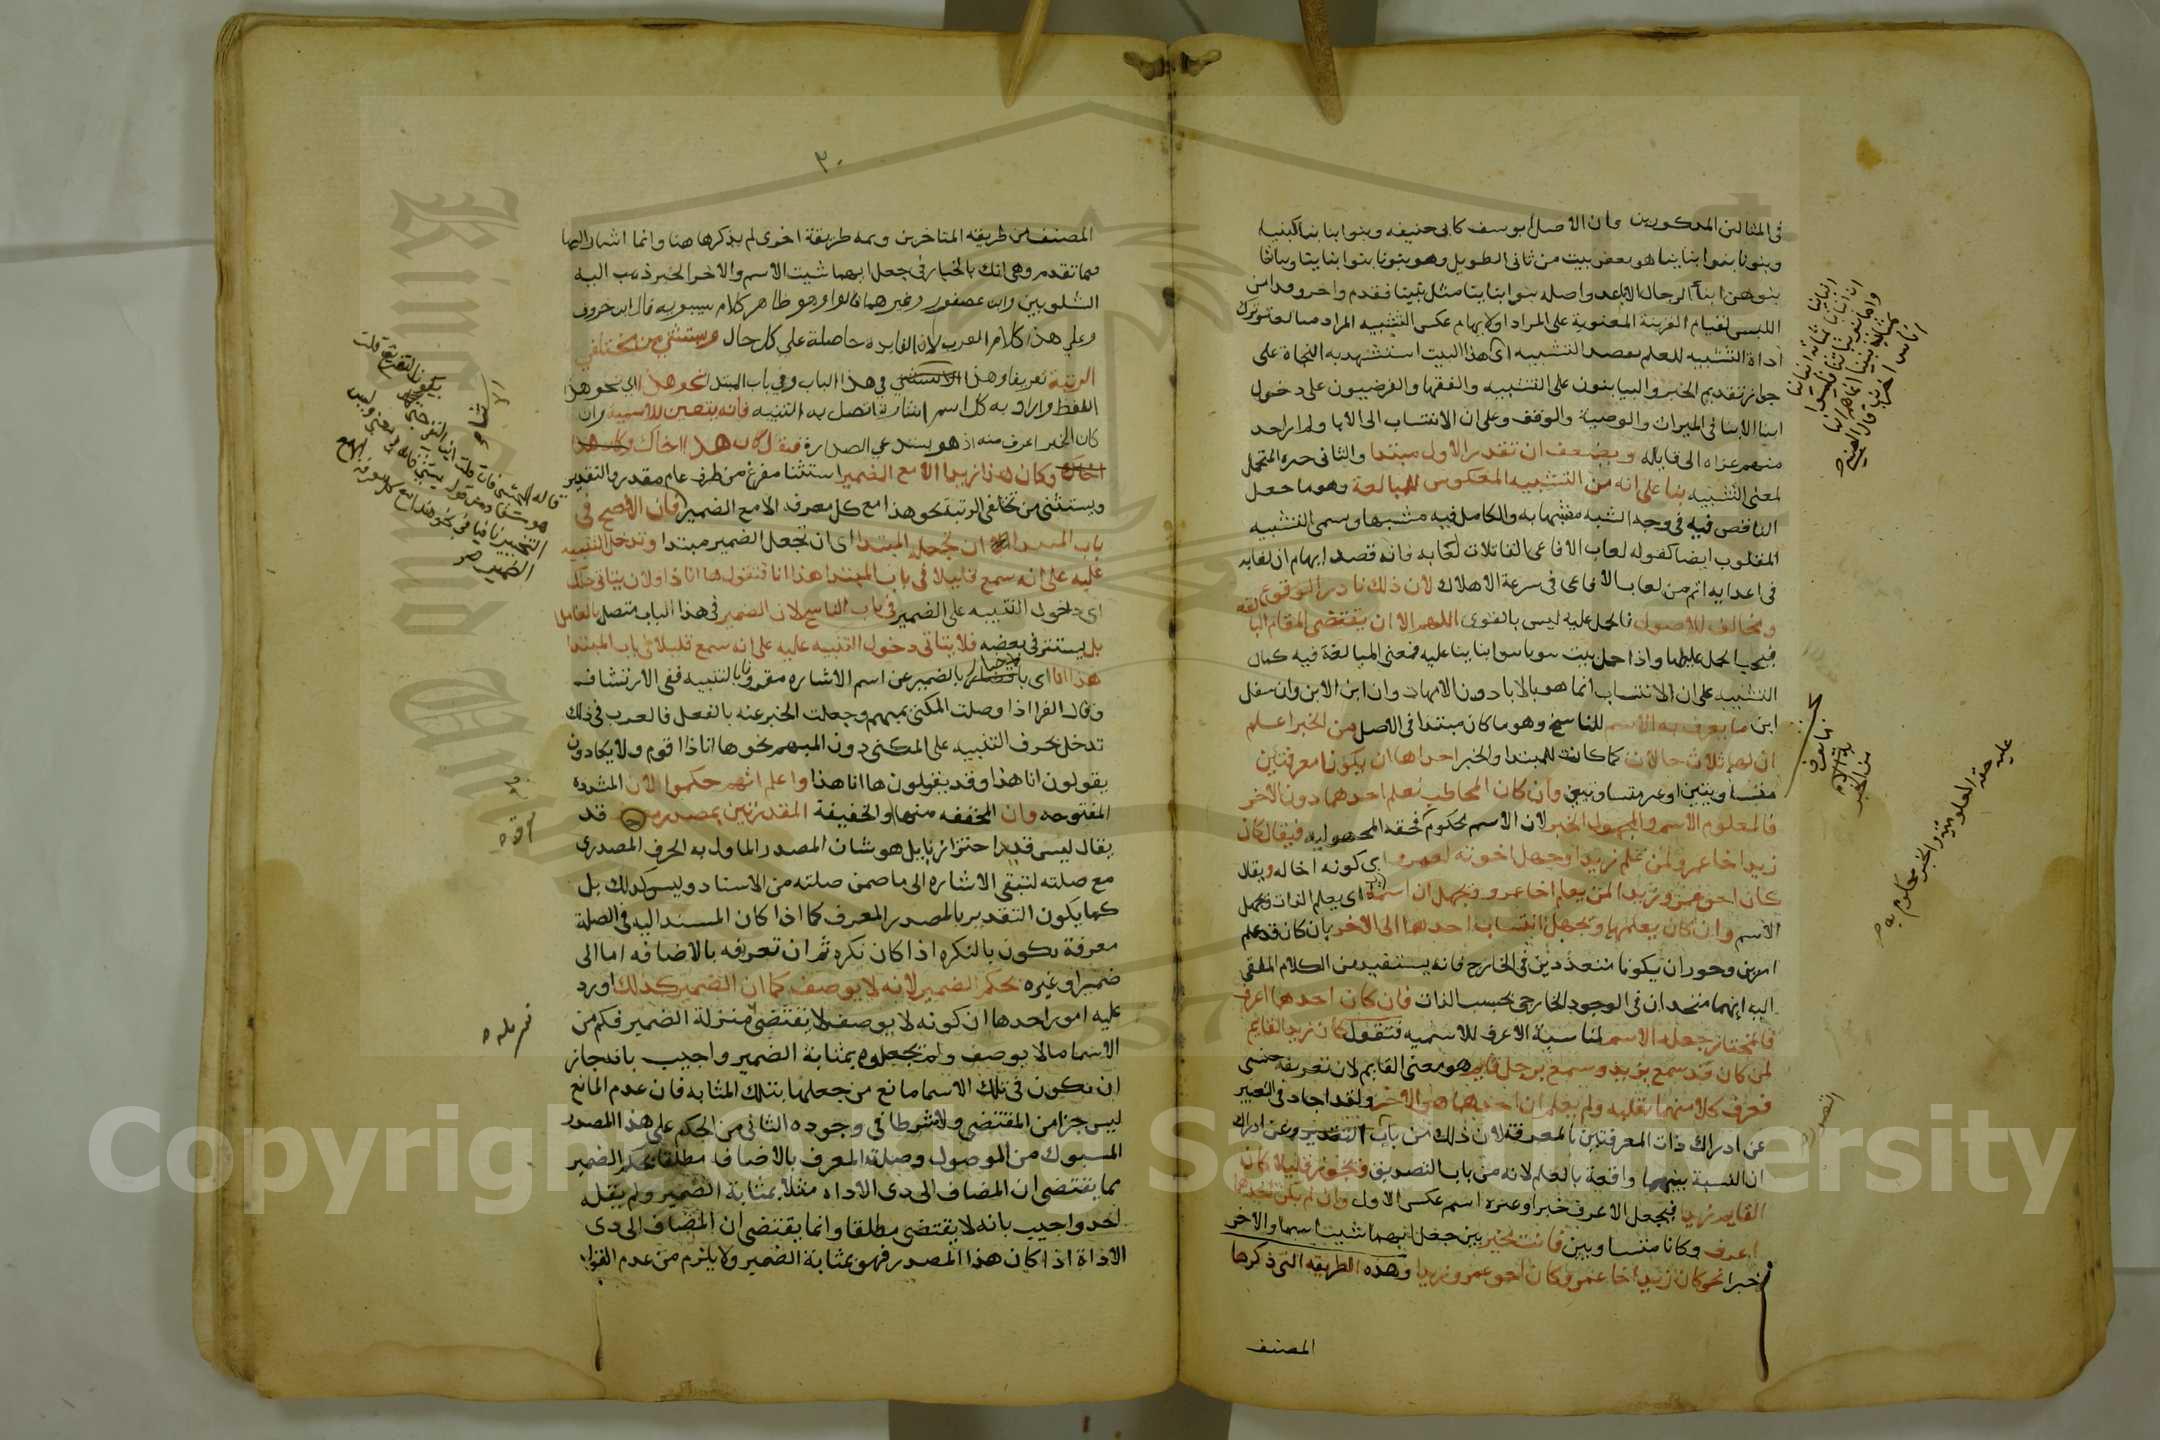 في المثالين المذكورين فان الاصل ابو يوسف كابي حنيفه وبنو ابنائنا كبنينا
وبنونا بنوا بناينا هو بعض بيت من ثاني الطويل وهو بنونا بنوا بناينا وبناتنا
بنوهن ابناء الرجال الاباعد واصله بنوا بناينا مثل بنينا فقدم واخر وقد امن
اللبس لقيام القرينة المعنوية على المراد اولايهام عكس التشبيه المراد مبالغة وترك
اداة التشبيه للعلم بقصد التشبيه اي هذا البيت استشهد به النحاة على
جواز تقديم الخبر والبيانيون على التشبيه والفقها والفرضيون على دخول
ابنا الابنا في الميراث والوصية والوقف وعلى ان الانتساب الى الابا ولم ار احد
منهم عزاه الى قايله ويضعف ان تقدر الاول مبتدا والثاني خبره المتحمل
لمعنى التشبيه بنا على انه من التشبيه المعكوس للمبالغة وهو ما جعل
الناقص فيه في وجه الشبه مشبها به والكامل فيه مشبها ويسمى التشبيه
المقلوب ايضا كقوله لعاب الافاعي القاتلات لعابه فانه قصد ايهام ان لعابه
في اعدايه اتم من لعاب الافاعي في سرعة الاهلاك لان ذلك نادر الوقوع
ومخالف للاصول فالحمل عليه ليس بالقوي اللهم الا ان يقتضي المقام المبالغة
فيجب الحمل عليها واذا حمل بيت بنونا بنوا بناينا عليه فمعنى المبالغة فيه كمال
التشبيه على ان الانتساب انما هو بالابا دون الامهات وان ابن الابن وان سفل
ابن ما يعرف به الاسم للناسخ وهو ما كان مبتدا في الاصل من الخبر اعلم
ان لهما ثلاث حالات كما كانت للمبتدا والخبر احداها ان يكونا معرفتين
متساويتين او غير متساويتين وان كان المخاطب يعلم احدهما دون الاخر
فالمعلوم الاسم والمجهول الخبر لان الاسم محكوم فحقه المجهوليه فيقال كان
زيد اخا عمرو لمن علم زيدا وجهل اخوته لعمرو اي كونه اخا له ويقال
كان اخو عمرو زيدا لمن يعلم اخا عمرو ويجهل ان اسمه اي يعلم الذات ويجهل
الاسم وان كان يعلمهما ويجهل انتساب احدهما الى الاخر بان كان قد علم
امرين وجوز ان يكونا متعددين في الخارج فانه يستفيد من الكلام الملقى
اليه انهما متحدان في الوجود الخارجي بحسب الذات فان كان احدهما اعرف
فالمختار جعله الاسم لمناسبة الاعرف للاسميه فتقول كان زيد القايم
لمن كان قد سمع بزيد وسمع برجل قايم هو معنى القايم لان تعريفه جنسي
فعرف كلا منهما بقلبه ولم يعلم ان احدهما هو الاخر ولقد اجاد في التعبير
عن ادراك ذات المعرفتين بالمعرفة لان ذلك من باب التصور وعن ادراك
ان النسبة بينهما واقعة بالعلم لانه من باب التصديق ويجوز قليلا كان
القايم زيدا فيجعل الاعرف خبرا وغيره اسم عكس الاول وان لم يكن احدهما
اعرف وكانا متساويين فانت مخير بين جعل ايهما شيت اسما والاخر
خبرا نحو كان زيد اخا عمرو وكان اخو عمرو زيدا وهذه الطريقه التي ذكرها
المصنف
٣٠
المصنف من طريقه المتاخرين وثمه طريقة اخرى لم يذكرها هنا وانما اشار اليها
فيما تقدم وهي انك بالخيار في جعل ايهما شيت الاسم والاخر الخبر ذهب اليه
الشلوبين وابن عصفور وغيرهما قالوا وهو ظاهر كلام سيبويه قال ابن خروف
وعلى هذا كلام العرب لان الفايده حاصلة على كل حال ويستثنى من مختلفي
الرتبة تعريفا وهذا الاستثنى في هذا الباب وفي باب المبتدا نحو هذا اي نحو هذا
اللفظ واراد به كل اسم اشارة اتصل به التنبيه فانه يتعين للاسمية وان
كان الخبر اعرف منه اذ هو يستدعي الصدارة فيقال كان هذا اخاك وكان هذا
اخاك وكان هذا زيدا الا مع الضمير استثنا مفرغ من ظرف عام مقدر والتقدير
ويستثنى من مختلفي الرتبة نحو هذا مع كل معرفة الا مع الضمير فان الافصح في
باب المبتدا ان تجعله المبتدا اي ان تجعل الضمير مبتدا وتدخل التنبيه
عليه على انه سمع قليلا في باب المبتدا هذا انا فتقول ها انا ذا ولا يتاتى ذلك
اي دخول التنبيه على الضمير في باب الناسخ لان الضمير في هذا الباب متصل بالعامل
بل يستتر في بعضه فلا يتاتى دخول التنبيه عليه على انه سمع قليلا في باب المبتدا
هذا انا اي بالاخبار بالضمير عن اسم الاشاره مقرونا بالتنبيه ففي الارتشاف
وقال الفرا اذا وصلت المكنى بمبهم وجعلت الخبر عنه بالفعل فالعرب في ذلك
تدخل حرف التنبيه على المكنى دون المبهم نحو ها انا ذا اقوم ولا يكادون
يقولون انا هذا وقد يقولون ها انا هذا واعلم انهم حكموا لان المشدده
المفتوحه وان المخففه منها والخفيفة المقدرتين بمصدر معرف قد
يقال ليس قيدا احترازيا بل هو شان المصدر الماول به الحرف المصدري
مع صلته لتبقى الاشاره الى ما ضمن صلته من الاسناد وليس كذلك بل
كما يكون التقدير بالمصدر المعرف كما اذا كان المسند اليه في الصلة
معرفة يكون بالنكره اذا كان نكره ثم ان تعريفه بالاضافه اما الى
ضمير او غيره بحكم الضمير لانه لا يوصف كما ان الضمير كذلك اورد
عليه امور احدها ان كونه لا يوصف لا يقتضي منزلة الضمير فكم من
الاسما ما لا يوصف ولم يجعلوه بمثابة الضمير واجيب بانه جاز
ان يكون في تلك الاسما مانع من جعلها بتلك المثابه فان عدم المانع
ليس جزا من المقتضي ولا شرطا في وجوده الثاني من الحكم على هذا المصدر
المسبوك من الموصول وصلته المعرف بالاضافه مطلقا بحكم الضمير
مما يقتضي ان المضاف الى ذي الاداه مثلا بمثابة الضمير ولم يقله
احد واجيب بانه لا يقتضي مطلقا وانما يقتضي ان المضاف الى ذي
الاداة اذا كان هذا المصدر فهو بمثابة الضمير ولا يلزم من عدم القول
Copyright © King Saud University
King Saud University
1957